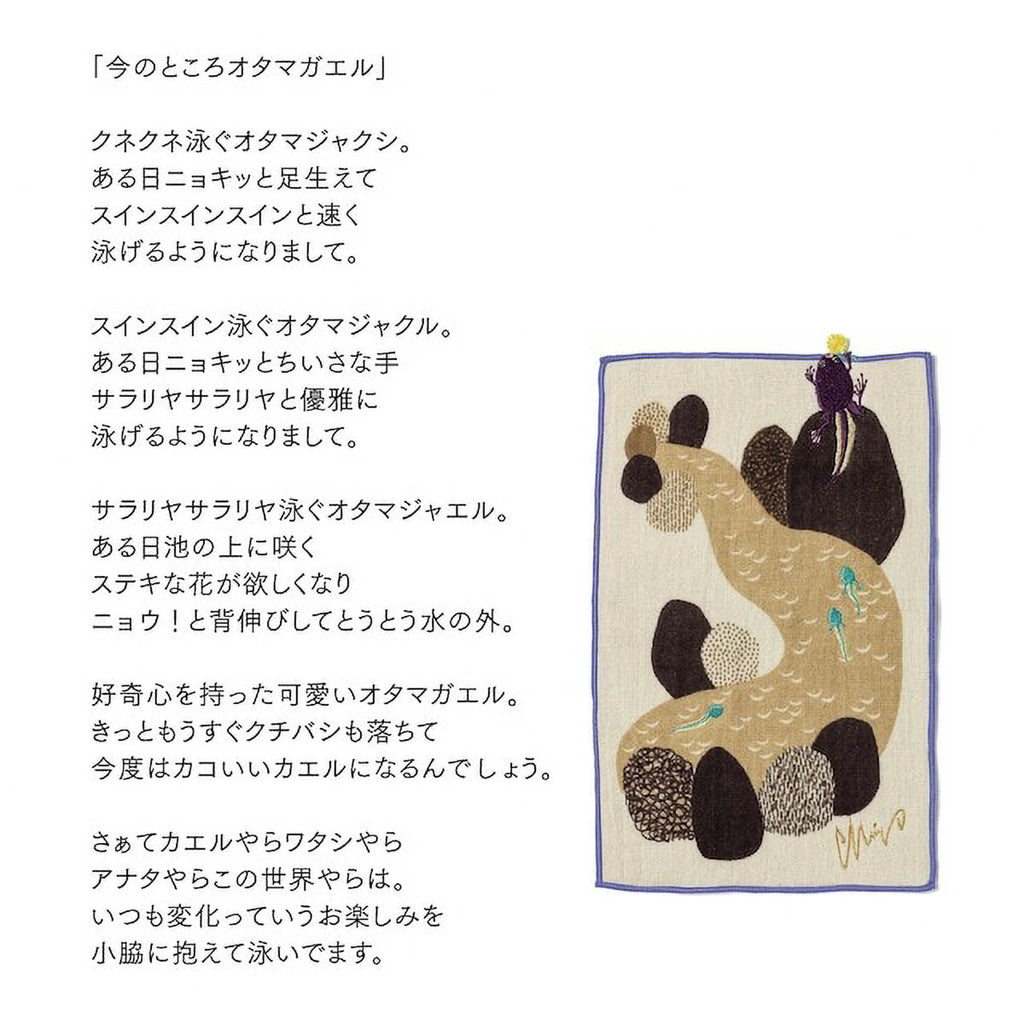 「今のところオタマガエル」
クネクネ泳ぐオタマジャクシ。
ある日ニョキッと足生えて
スインスインスインと速く
泳げるようになりまして。
スインスイン泳ぐオタマジャクル。
ある日ニョキッとちいさな手
サラリヤサラリヤと優雅に
泳げるようになりまして。
サラリヤサラリヤ泳ぐオタマジャエル。
ある日池の上に咲く
ステキな花が欲しくなり
ニョウ！と背伸びしてとうとう水の外。
好奇心を持った可愛いオタマガエル。
きっともうすぐクチバシも落ちて
今度はカコいいカエルになるんでしょう。
さぁてカエルやらワタシやら
アナタやらこの世界やらは。
いつも変化っていうお楽しみを
小脇に抱えて泳いでます。